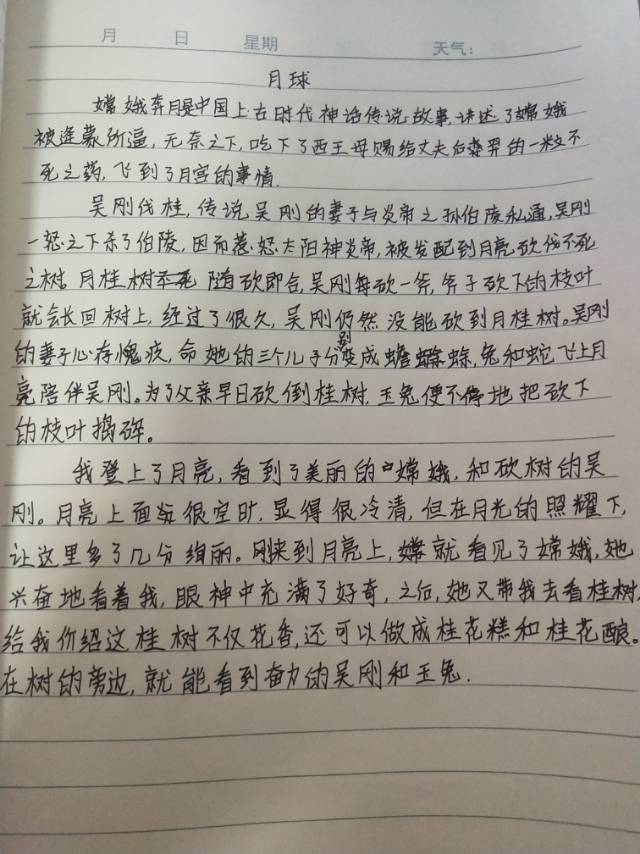 月 日 星期 天气:
月球
嫦娥奔月是中国上古时代神话传说故事,讲述了嫦娥
被逢蒙所逼,无奈之下,吃下了西王母赐给丈夫后羿的一粒不
死之药,飞到了月宫的事情.
吴刚伐桂,传说吴刚的妻子与炎帝之孙伯陵私通,吴刚
一怒之下杀了伯陵,因而惹怒太阳神炎帝,被发配到月亮砍伐不死
之树,月桂树 随砍即合,吴刚每砍一斧,斧子砍下的枝叶
就会长回树上,经过了很久,吴刚仍然没能砍到月桂树。吴刚
的妻子心存愧疚,命她的三个儿子分别变成蟾蜍,兔和蛇飞上月
亮陪伴吴刚。为了父亲早日砍倒桂树,玉兔便不停地把砍下
的枝叶捣碎。
我登上了月亮,看到了美丽的嫦娥,和砍树的吴
刚。月亮上面很空旷,显得很冷清,但在月光的照耀下,
让这里多了几分绚丽。刚来到月亮上,就看见了嫦娥,她
兴奋地看着我,眼神中充满了好奇,之后,她又带我去看桂树,
给我介绍这桂树不仅花香,还可以做成桂花糕和桂花酿。
在树的旁边,就能看到奋力的吴刚和玉兔.